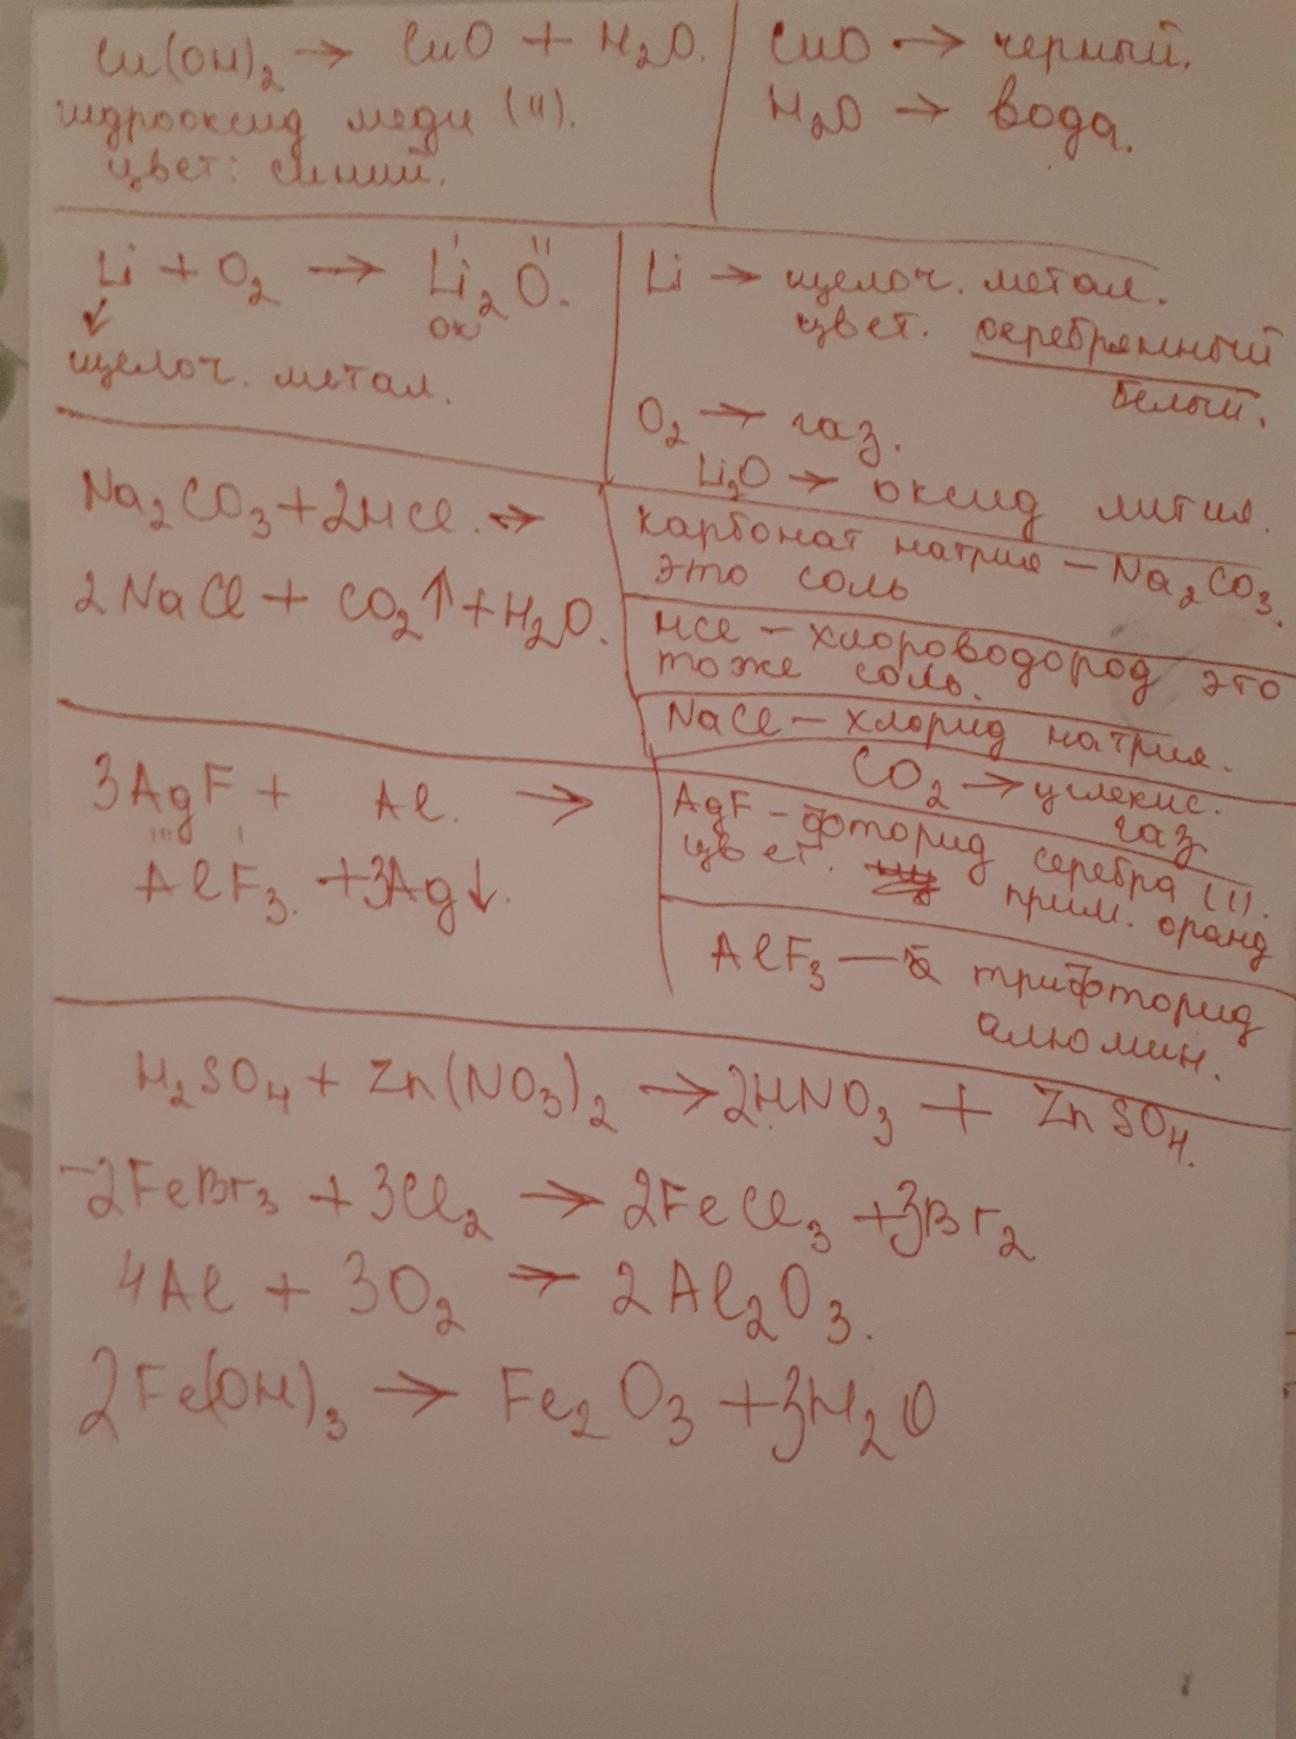 Cu(OH)₂ → CuO + H₂O.
гидрооксид меди (II).
цвет: синий.
CuO → черный.
H₂O → вода.
Li + O₂ → Li₂O.
I II
ок
щелоч. метал.
Li → щелоч. метал.
цвет. серебрянный
белый.
O₂ → газ.
Li₂O → оксид лития.
Na₂CO₃ + 2HCl. →
2NaCl + CO₂↑ + H₂O.
карбонат натрия – Na₂CO₃.
это соль
HCl – хлороводород это
тоже соль.
NaCl – хлорид натрия.
CO₂ → углекис.
газ
3AgF + Al. →
III I
AlF₃. + 3Ag↓.
AgF – фторид серебра (I).
цвет. прим. оранд
AlF₃ — трифторид
алюмин.
H₂SO₄ + Zn(NO₃)₂ → 2HNO₃ + ZnSO₄.
–2FeBr₃ + 3Cl₂ → 2FeCl₃ + 3Br₂
4Al + 3O₂ → 2Al₂O₃.
2Fe(OH)₃ → Fe₂O₃ + 3H₂O